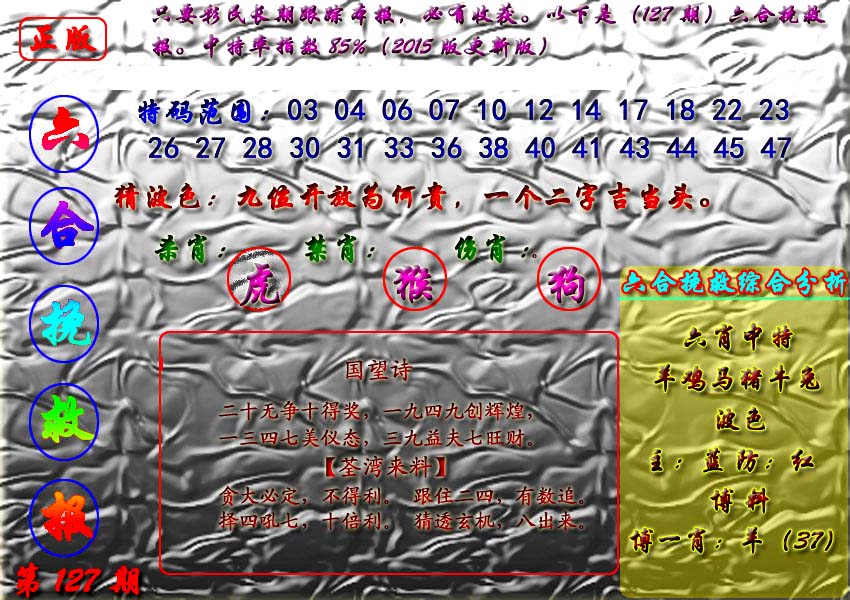 正版
只要彩民长期跟踪本报，必有收获。以下是（127期）六合挽救
报。中特率指数85%（2015版更新版）
六合挽救报
第127期
特码范围：03 04 06 07 10 12 14 17 18 22 23
26 27 28 30 31 33 36 38 40 41 43 44 45 47
猜波色：九位开放为何贵，一个二字吉当头。
杀肖：虎 禁肖：猴 伤肖：狗
国望诗
二十无争十得奖，一九四九创辉煌，
一三四七美仪态，三九益夫七旺财。
【荃湾来料】
贪大必定，不得利。 跟住二四，有数追。
择四吼七，十倍利。 猜透玄机，八出来。
六合挽救综合分析
六肖中特
羊鸡马猪牛兔
波色
主：蓝防：红
博料
博一肖：羊（37）